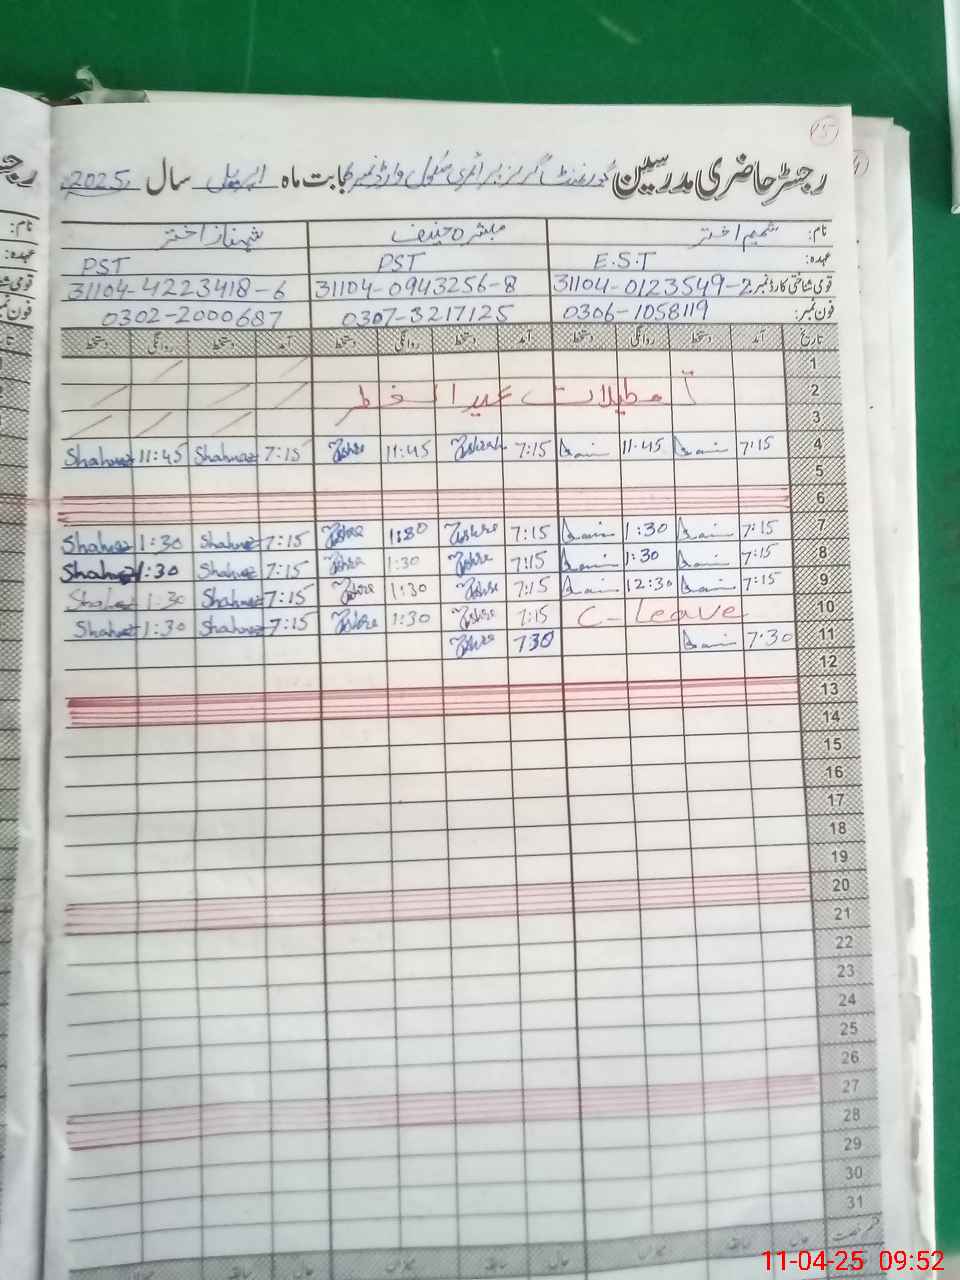 15
رجسٹر حاضری مدرسین گورنمنٹ گرلز پرائمری سکول وارڈ نمبر بابت ماہ اپریل سال 2025
نام: شمیم اختر مبشرہ حنیف شہناز اختر
عہدہ: E.S.T PST PST
قومی شناختی کارڈ نمبر: 31104-0123549-2 31104-0943256-8 31104-4223418-6
فون نمبر: 0306-1058119 0307-3217125 0302-2000687
تاریخ آمد دستخط روانگی دستخط آمد دستخط روانگی دستخط آمد دستخط روانگی دستخط
1
2 تعطیلات عید الفطر
3
4 7:15 11:45 7:15 11:45 7:15 Shahnaz 11:45 Shahnaz
5
6
7 7:15 1:30 7:15 1:30 7:15 Shahnaz 1:30 Shahnaz
8 7:15 1:30 7:15 1:30 7:15 Shahnaz 1:30 Shahnaz
9 7:15 12:30 7:15 1:30 7:15 Shahnaz 1:30 Shahnaz
10 C-Leave 7:15 1:30 7:15 Shahnaz 1:30 Shahnaz
11 7:30 7:30
12
13
14
15
16
17
18
19
20
21
22
23
24
25
26
27
28
29
30
31
11-04-25 09:52